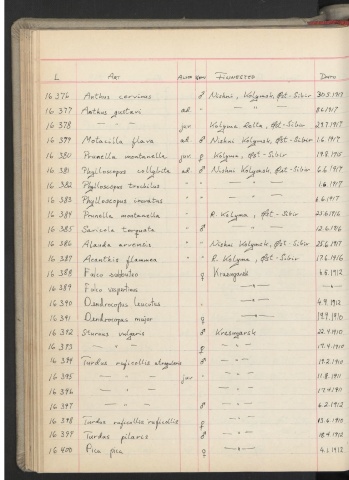 L ART ALDER KJØNN FINNESTED DATO
16 376 Anthus cervinus ♂ Nishni, Kolymsk, Øst-Sibir 30.5.1917
16 377 Anthus gustavi ad. " — " —
16 378 — " — juv. Kolyma Delta, Øst-Sibir 23.7.1917
16 379 Motacilla flava ad. ♂ Nishni Kolymsk, Øst-Sibir 1.6.1917
16 380 Prunella montanella juv. ♀ Kolyma, Øst-Sibir
16 381 Phylloscopus collybita ad. ♂ Nishni Kolymsk, Øst-Sibir 6.6.1917
16 382 Phylloscopus trochilus " " — " — 1.6.1917
16 383 Phylloscopus " " — " — 6.6.1917
16 384 Prunella montanella " R. Kolyma, Øst-Sibir 25.6.1916
16 385 Saxicola torquata " ♂ — " — 12.6.1916
16 386 Alauda arvensis " " Nishni Kolymsk, Øst-Sibir 25.6.1917
16 387 Acanthis flammea " " R. Kolyma, Øst-Sibir 17.6.1916
16 388 Falco subbuteo ♀ Krasnojarsk 4.8.1912
16 389 Falco vespertinus — " — — " —
16 390 Dendrocopus leucotus " — " — 4.9.1912
16 391 Dendrocopus major ♀ — " — 19.9.1910
16 392 Sturnus vulgaris ♂ Krasnojarsk 22.4.1910
16 393 — " — ♀ — " — 19.4.1910
16 394 Turdus ruficollis atrogularis ♂ — " — 19.2.1910
16 395 — " — juv — " — 11.8.1911
16 396 — " — — " — 17.4.1911
16 397 — " — ♂ — " — 6.2.1912
16 398 Turdus ruficollis ruficollis ♀ — " — 13.4.1910
16 399 Turdus pilaris ♂ — " — 18.4.1912
16 400 Pica pica ♀ — " — 4.1.1912